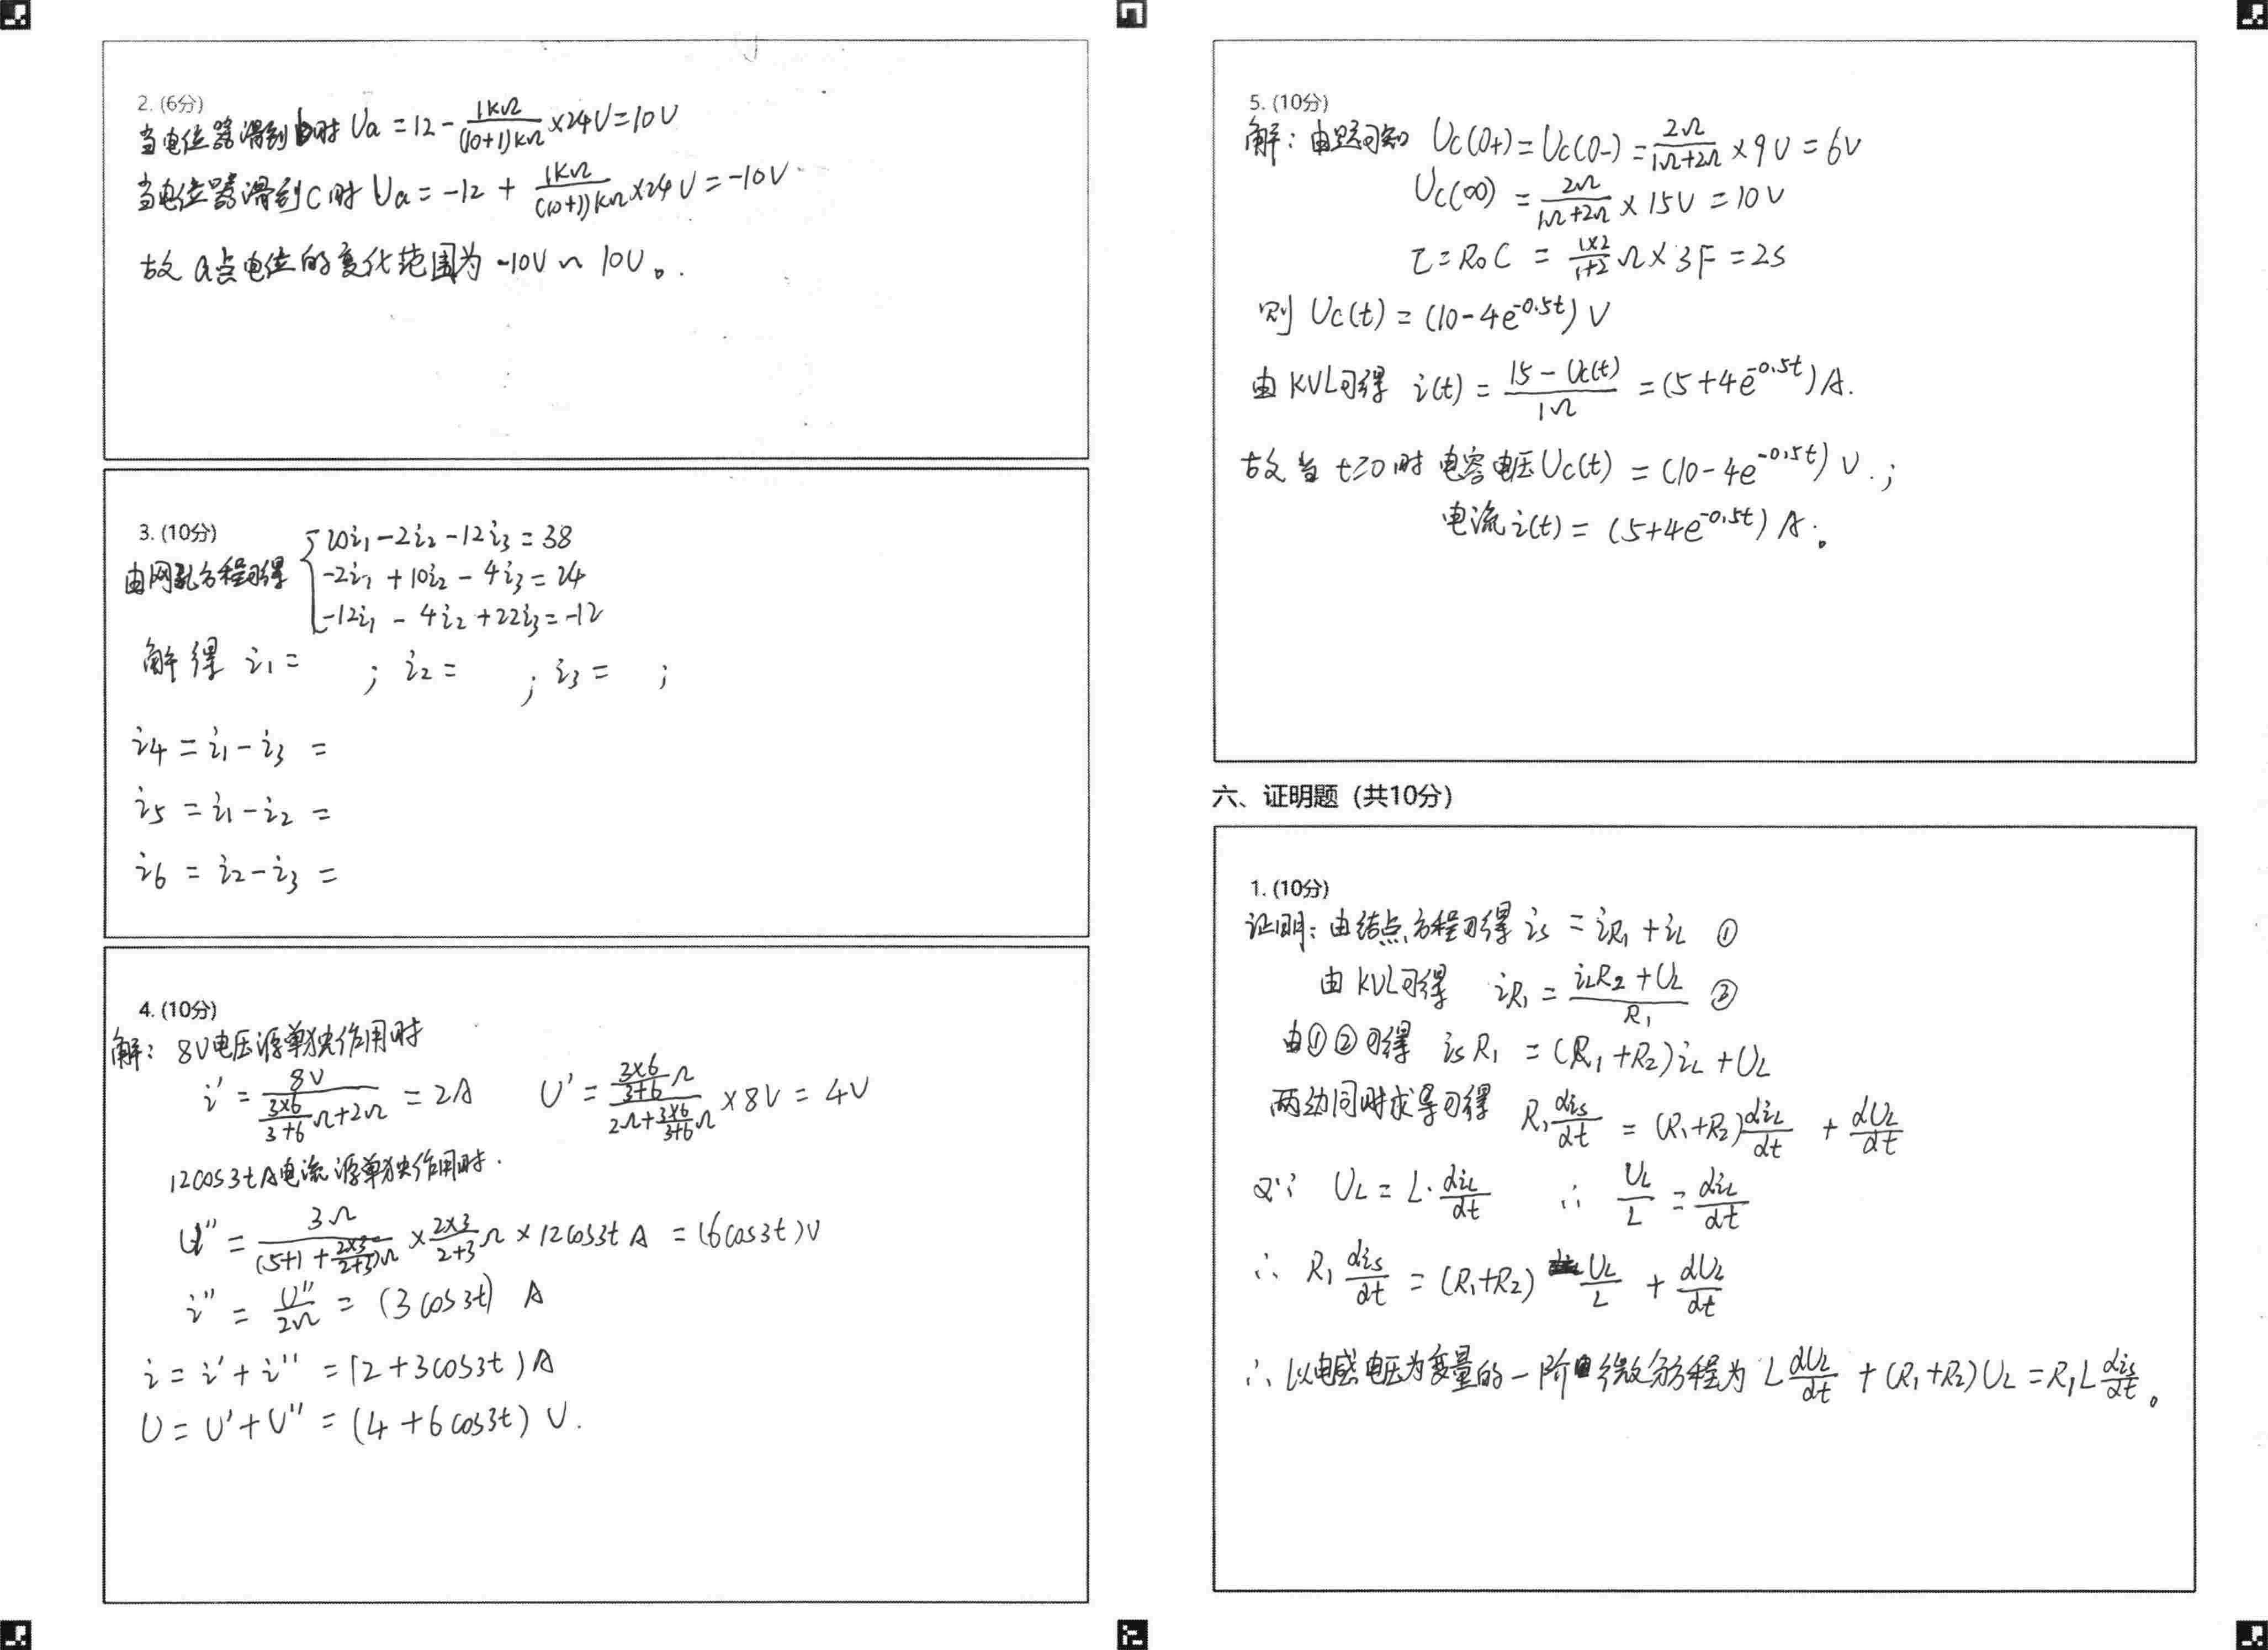 2. (6分)
当电位器滑到b时 Ua = 12 - 1KΩ/(10+1)KΩ ×24V = 10V
当电位器滑到C时 Ua = -12 + 1KΩ/(10+1)KΩ ×24V = -10V
故 a点电位的变化范围为 -10V ~ 10V。
3. (10分)
由网孔方程可得 { 20i₁ - 2i₂ - 12i₃ = 38
-2i₁ + 10i₂ - 4i₃ = 24
-12i₁ - 4i₂ + 22i₃ = -12
解得 i₁ = ; i₂ = ; i₃ = ;
i₄ = i₁ - i₃ =
i₅ = i₁ - i₂ =
i₆ = i₂ - i₃ =
4. (10分)
解: 8V电压源单独作用时
i' = 8V/(3×6/(3+6) Ω + 2Ω) = 2A U' = (3×6/(3+6) Ω)/(2Ω + 3×6/(3+6) Ω) × 8V = 4V
12cos3t A电流源单独作用时.
U'' = 3Ω/((5+1) + 2×3/(2+3))Ω × 2×3/(2+3) Ω × 12cos3t A = (6cos3t)V
i'' = U''/2Ω = (3cos3t) A
i = i' + i'' = (2+3cos3t) A
U = U' + U'' = (4+6cos3t) V.
5. (10分)
解: 由题可知 Uc(0+) = Uc(0-) = 2Ω/(1Ω+2Ω) × 9V = 6V
Uc(∞) = 2Ω/(1Ω+2Ω) × 15V = 10V
τ = R₀C = 1×2/(1+2) Ω × 3F = 2s
则 Uc(t) = (10-4e^{-0.5t}) V
由KVL可得 i(t) = (15 - Uc(t))/1Ω = (5+4e^{-0.5t}) A.
故当 t≥0时 电容电压Uc(t) = (10-4e^{-0.5t}) V.;
电流 i(t) = (5+4e^{-0.5t}) A。
六、证明题 (共10分)
1. (10分)
证明: 由结点方程可得 is = iR₁ + iL ①
由KVL可得 iR₁ = (iLR₂ + UL)/R₁ ②
由①②可得 isR₁ = (R₁+R₂)iL + UL
两边同时求导可得 R₁ dis/dt = (R₁+R₂) diL/dt + dUL/dt
又∵ UL = L· diL/dt ∴ UL/L = diL/dt
∴ R₁ dis/dt = (R₁+R₂) UL/L + dUL/dt
∴ 以电感电压为变量的一阶微分方程为 L dUL/dt + (R₁+R₂)UL = R₁L dis/dt。